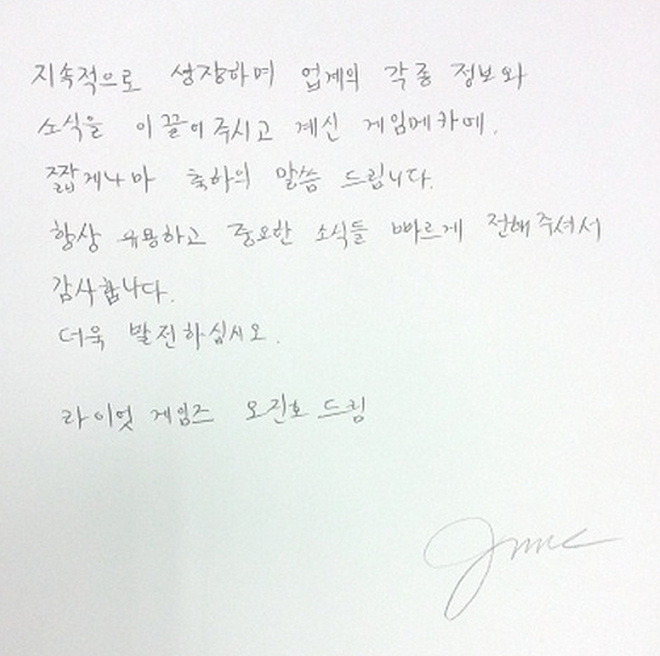 지속적으로 성장하며 업계의 각종 정보와
소식을 이끌어 주시고 계신 게임메카에,
짧게나마 축하의 말씀 드립니다.
항상 유용하고 중요한 소식들 빠르게 전해주셔서
감사합니다.
더욱 발전하십시오.
라이엇 게임즈 오진호 드림